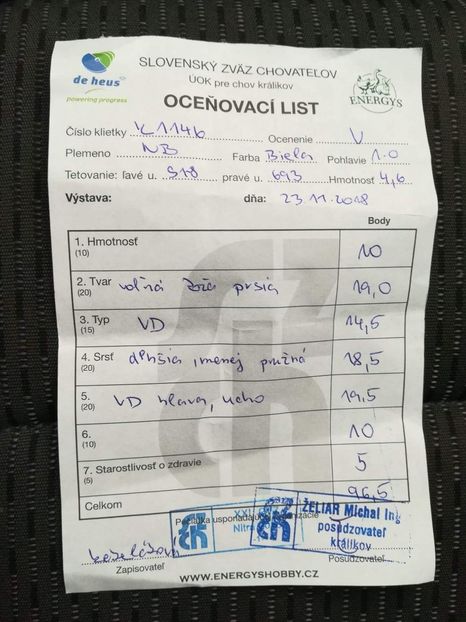 de heus
powering progress
SLOVENSKÝ ZVÄZ CHOVATEĽOV
ÚOK pre chov králikov
OCEŇOVACÍ LIST
ENERGYS
Číslo klietky K1146 Ocenenie V
Plemeno NB Farba Biela Pohlavie 1.0
Tetovanie: ľavé u. S18 pravé u. 693 Hmotnosť 4,6
Výstava: dňa: 23.11.2018
Body
1. Hmotnosť 10
(10)
2. Tvar voľná koža prsia 19,0
(20)
3. Typ VD 14,5
(15)
4. Srsť dlhšia, menej pružná 18,5
(20)
5. VD hlava, ucho 19,5
(20)
6. 10
(10)
7. Starostlivosť o zdravie 5
(5)
Celkom 96,5
Pečiatka usporiadajúcej organizácie
XXI
Nitra
ŽELIAR Michal Ing
posudzovateľ
králikov
Zapisovateľ Posudzovateľ
WWW.ENERGYSHOBBY.CZ